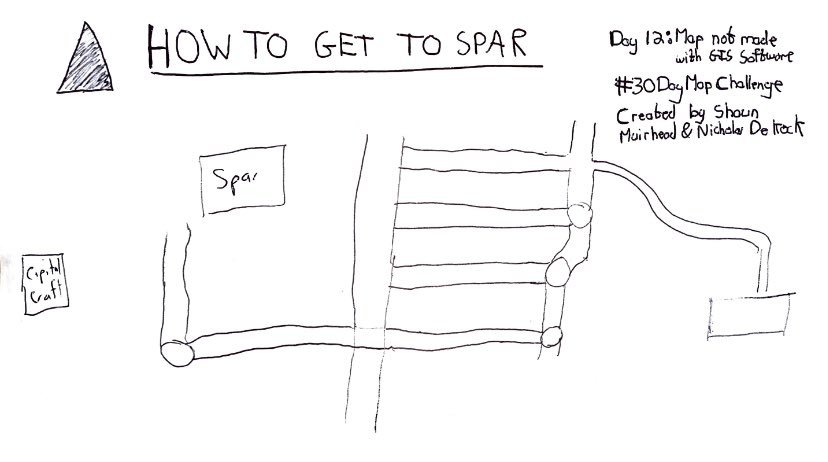 HOW TO GET TO SPAR
Day 12: Map not made
with GIS Software
#30DayMapChallenge
Created by Shaun
Muirhead & Nicholas De Kock
Spar
Capital
Craft